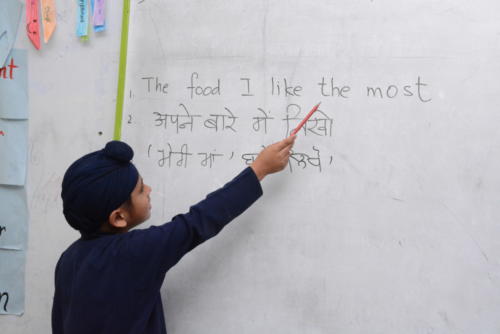 1. The food I like the most
2. अपने बारे में लिखो
'ਮੇਰੀ ਮਾਂ'